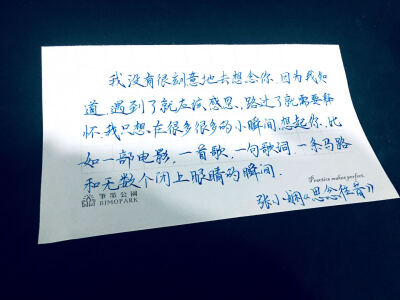 我没有很刻意地去想念你.因为我知
道.遇到了就应该感恩.路过了就需要释
怀.我只想.在很多很多的小瞬间.想起你.比
如一部电影,一首歌,一句歌词.一条马路
和无数个闭上眼睛的瞬间.
笔墨公园
BIMOPARK
Practice makes perfect.
张小娴《思念维音》